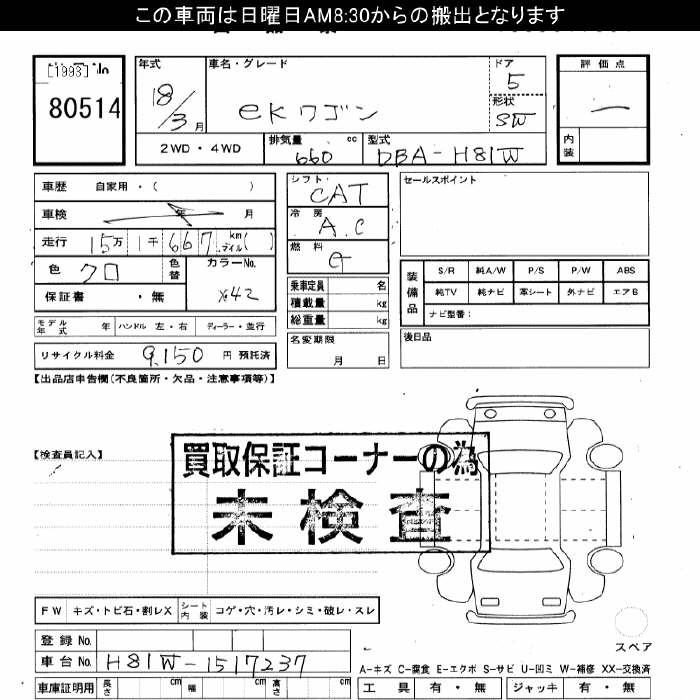 この車両は日曜日AM8:30からの搬出となります
[1993] No
80514
年式
18/3 月
車名・グレード
eKワゴン
ドア
5
形状
SW
評価点
―
内装
2WD・4WD
排気量
660 cc
型式
DBA-H81W
車歴 自家用・( )
車検 年 月
走行 15万 1千 667 km マイル ( )
色 クロ
色替
カラーNo.
X42
保証書 ・無
モデル年式 年 ハンドル 左・右 ディーラー・並行
リサイクル料金 9,150 円 預託済
シフト
CAT
冷房
A.C
燃料
G
乗車定員 名
積載量 kg
総重量 kg
名変期限
月 日
セールスポイント
装備品
S/R 純A/W P/S P/W ABS
純TV 純ナビ 革シート 外ナビ エアB
ナビ型番:
後日品
【出品店申告欄(不良箇所・欠品・注意事項等)】
【検査員記入】
買取保証コーナーの為
未検査
FW キズ・トビ石・割レX シート内装 コゲ・穴・汚レ・シミ・破レ・スレ
登録No.
車台No. H81W-1517237
車庫証明用 長さ cm 幅 cm 高さ cm
スペア
A-キズ C-腐食 E-エクボ S-サビ U-凹ミ W-補修 XX-交換済
工具 有・無 ジャッキ 有・無